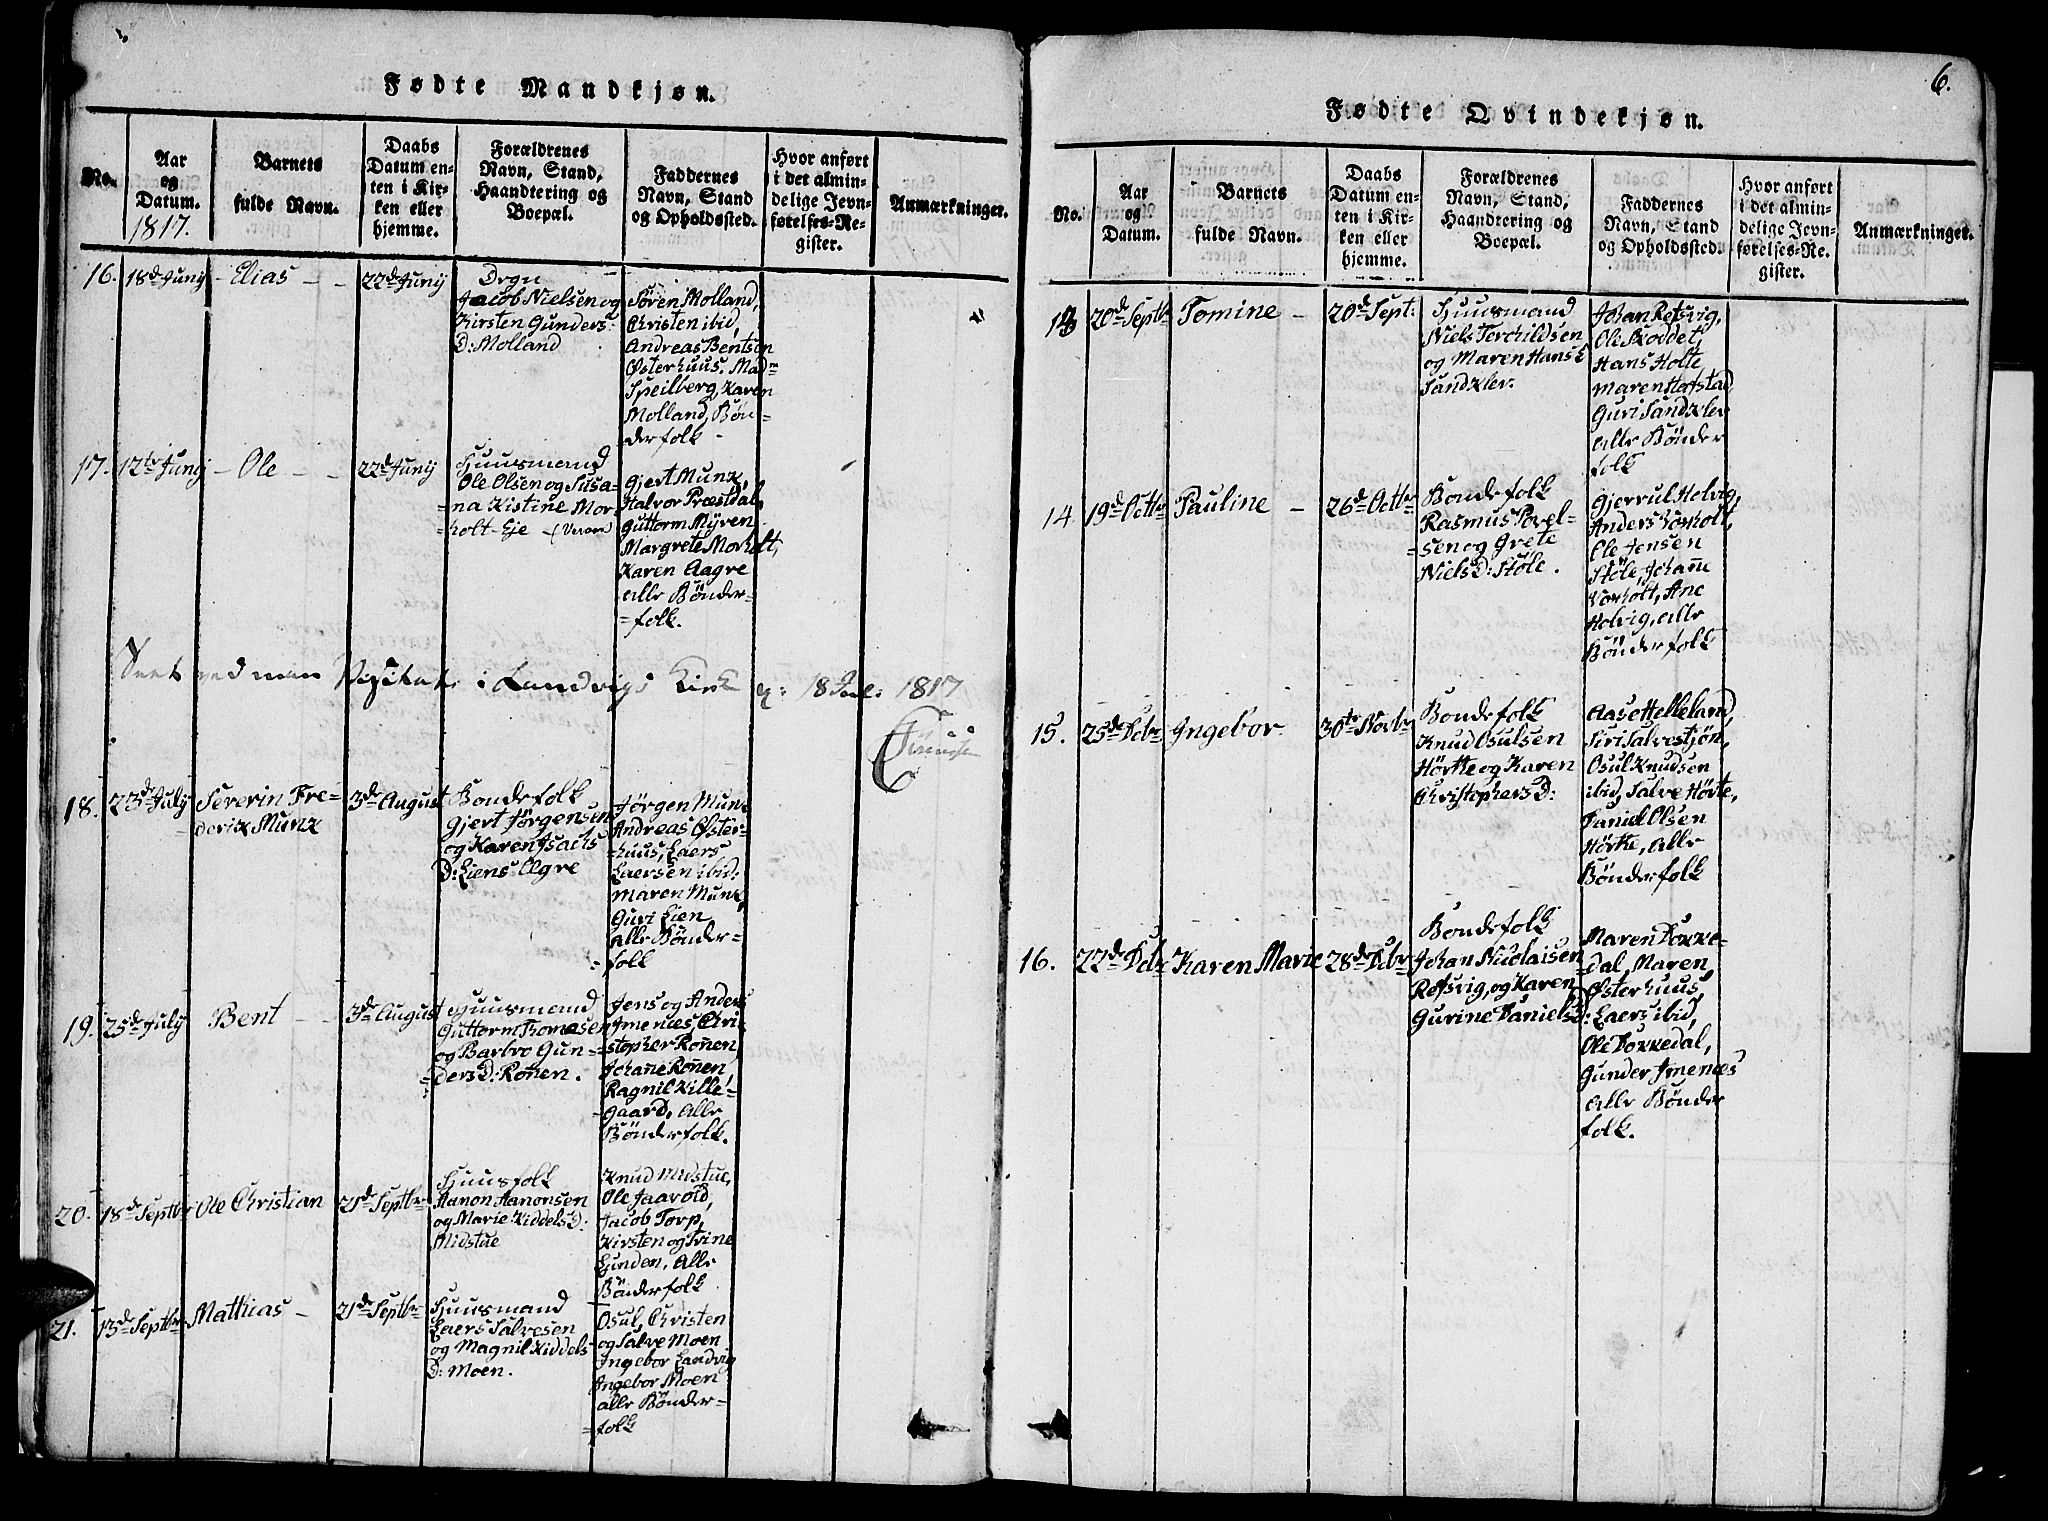 Fødte Mandkjøn.
No.
Aar
og
Datum.
1817.
Barnets
fulde Navn.
Daabs
Datum en-
ten i Kir-
ken eller
hjemme.
Forældrenes
Navn, Stand,
Haandtering og
Boepæl.
Faddernes
Navn, Stand
og Opholdssted.
Hvor anført
i det almin-
delige Jevn-
førelses-Re-
gister.
Anmærkninger.
16. 18d Junij - Elias - - 22d Junij
Jacob Nielsen og
Kirsten Gunders
D: Molland
Søren Molland,
Christen ibid,
Andreas Bentsen
Østerhuus. Madm
Speilberg, Karen
Molland, Bøn-
derfolk -
17. 12te Junij - Ole - - 22d Junij
Huusmand
Ole Olsen og Susa-
na Kistine Mor-
holt-Eje
Gjert Munk,
Halvor Præstdal,
Guttorm Myren
Margrete Morholt,
Karen Aagre
alle Bønder-
folk.
Seet ved min Visitats i Landvigs Kirke d: 18 Jul: 1817
18. 23d July Severin Fre-
derik Munk
3de August
Bondefolk
Gjert Jørgensen
og Karen Isacts
D: Liens Agre
Jørgen Munk
Andreas Øster-
huus, Laers
Laersen ibid,
Maren Munk,
Guri Lien,
alle Bønder-
folk
19. 25d July Bent - - 3de August
Huusmand
Guttorm Thomesen
og Barbro Gun-
ders D: Rønen.
Jens og Anders
Imenæs, Chri-
stopher Rønen,
Johane Rønen,
Ragnil Kille-
gaard, alle
Bønderfolk.
20. 18de Septbr Ole Christian 21de Septbr
Huusfolk
Aanon Aanonsen
og Marie Kiddels D:
Midstue
Knud Midstue,
Ole Jaavold,
Jacob Torp,
Kirsten og Trine
Lunden, Alle
Bønderfolk
21. 13de Septbr Mathias - 21de Septbr
Huusmand
Laers Salvesen
og Magnil Kiddels
D: Moen.
Osul, Christen
og Salve Moen
Ingebor Landvig
Ingebor Moen
alle Bønder-
folk
6.
Fødte Qvindekjøn.
No.
Aar
og
Datum.
Barnets
fulde Navn.
Daabs
Datum en-
ten i Kir-
ken eller
hjemme.
Forældrenes
Navn, Stand,
Haandtering og
Boepæl.
Faddernes
Navn, Stand
og Opholdssted.
Hvor anført
i det almin-
delige Jevn-
førelses-Re-
gister.
Anmærkninger.
13 20d Septbr Tomine - 20d Sept:
Huusmand
Niels Terchildsen
og Maren Hans D
Sandkler.
Johan Refsvig,
Ole Skoddet,
Hans Holte,
Maren Hofstad,
Guri Sandkler
alle Bønder
folk
14. 19d Octbr Pauline - 26d Octbr
Bondefolk
Rasmus Povel-
sen og Grete
Niels D: Støle.
Gjerrul Holvig,
Anders Voxholt,
Ole Jensen
Støle, Johane
Voxholt, Ane
Holvig, alle
Bønderfolk
15. 25de Dcbr Ingebor 30te Novbr
Bondefolk
Knud Osulsen
Hørtte og Karen
Christophers D:
Aase Helleland,
Siri Salvestjøn,
Osul Knudsen
ibid, Salve Hørte,
Daniel Olsen
Hørtte, alle
Bønderfolk
16. 22de Dcbr Karen Marie 28de Dcbr
Bondefolk
Johan Nicolaisen
Refsvig, og Karen
Gurine Daniels D:
Maren Doxke-
dal, Maren
Østerhuus
Laers ibid,
Ole Doxkedal,
Gunder Imenæs
alle Bønder
folk.